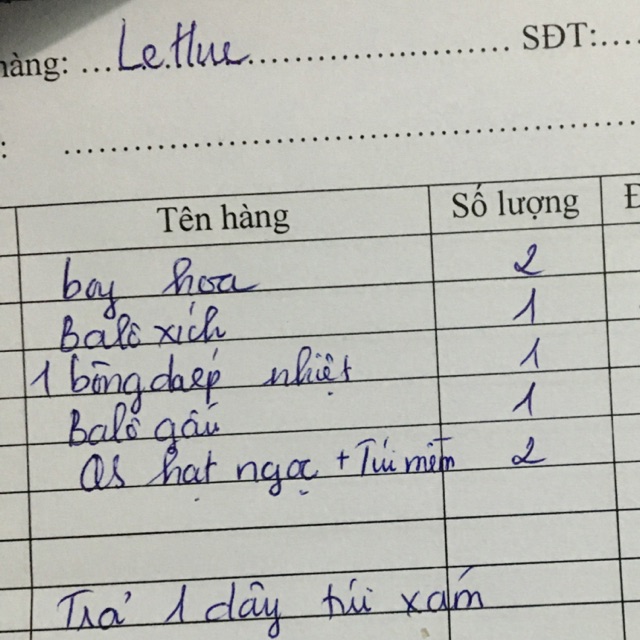 hàng: ...Le.Hue................................ SĐT:....
: ................................................................
Tên hàng Số lượng Đ
boy hoa 2
Balô xích 1
1 bông daép nhiệt 1
Balô gấu 1
QS hạt ngọc + Túi mềm 2
Trả 1 dây túi xám